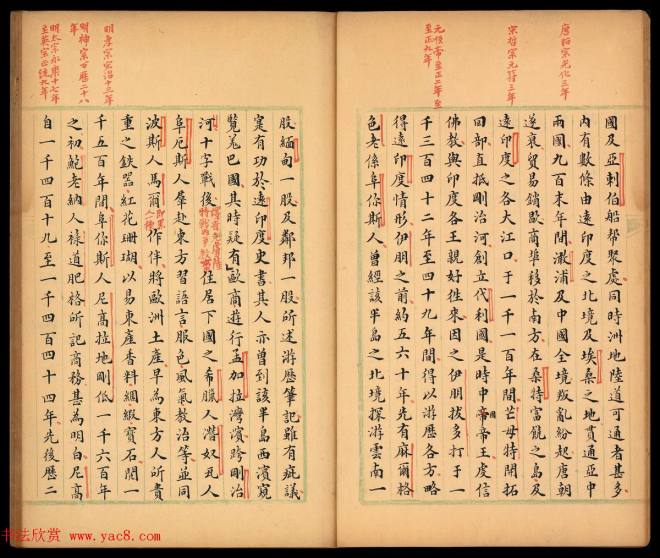 唐昭宗光化三年
宋哲宗元符三年
元順帝至正二年至
至正九年
國及亞剌伯船幫聚處同時洲地陸道可通者甚多
內有數條由遠印度之北境及埃桑之地貫通亞中
兩國九百末年間澉浦及中國全境叛亂紛起唐朝
遂衰貿易銷歇商埠移於南方在桑特富饒之島及
遠印度之各大江口于一千一百年間芒毋特開拓
回部直抵剛治河創立代利國是時中國帝帝王虔信
佛教與印度各王親好往來因之伊朋拔多打于一
千三百四十二年至四十九年間得以游歷各方略
得遠印度情形伊朋之前約五六十年先有麻爾格
色老係阜你斯人曾經該半島之北境探游雲南一
明孝宗宏治十三年
明神宗萬歷二十八
年
明太宗永樂十七年
至英宗正統九年
股緬甸一股及鄰邦一股所述游歷筆記雖有疵議
寔有功於遠印度史書其人亦曾到該半島西濱窺
覽危巴國其時疑有歐商遊行孟加拉灣濱跨剛治
河十字戰後住居下國之希臘人潛奴丑人
阜厄斯人羣赴東方習語言服色風氣教治等並同
波斯人馬爾作伴將歐洲土產早為東方人所貴
重之鉄器紅花珊瑚以易東產香料綢緞寶石間一
千五百年間阜你斯人尼高拉地剛低一千六百年
之初鮑老納人祿道肥格所記商務甚為明白尼高
自一千四百十九年至一千四百四十四年先後歷二
书法欣赏 www.yac8.com